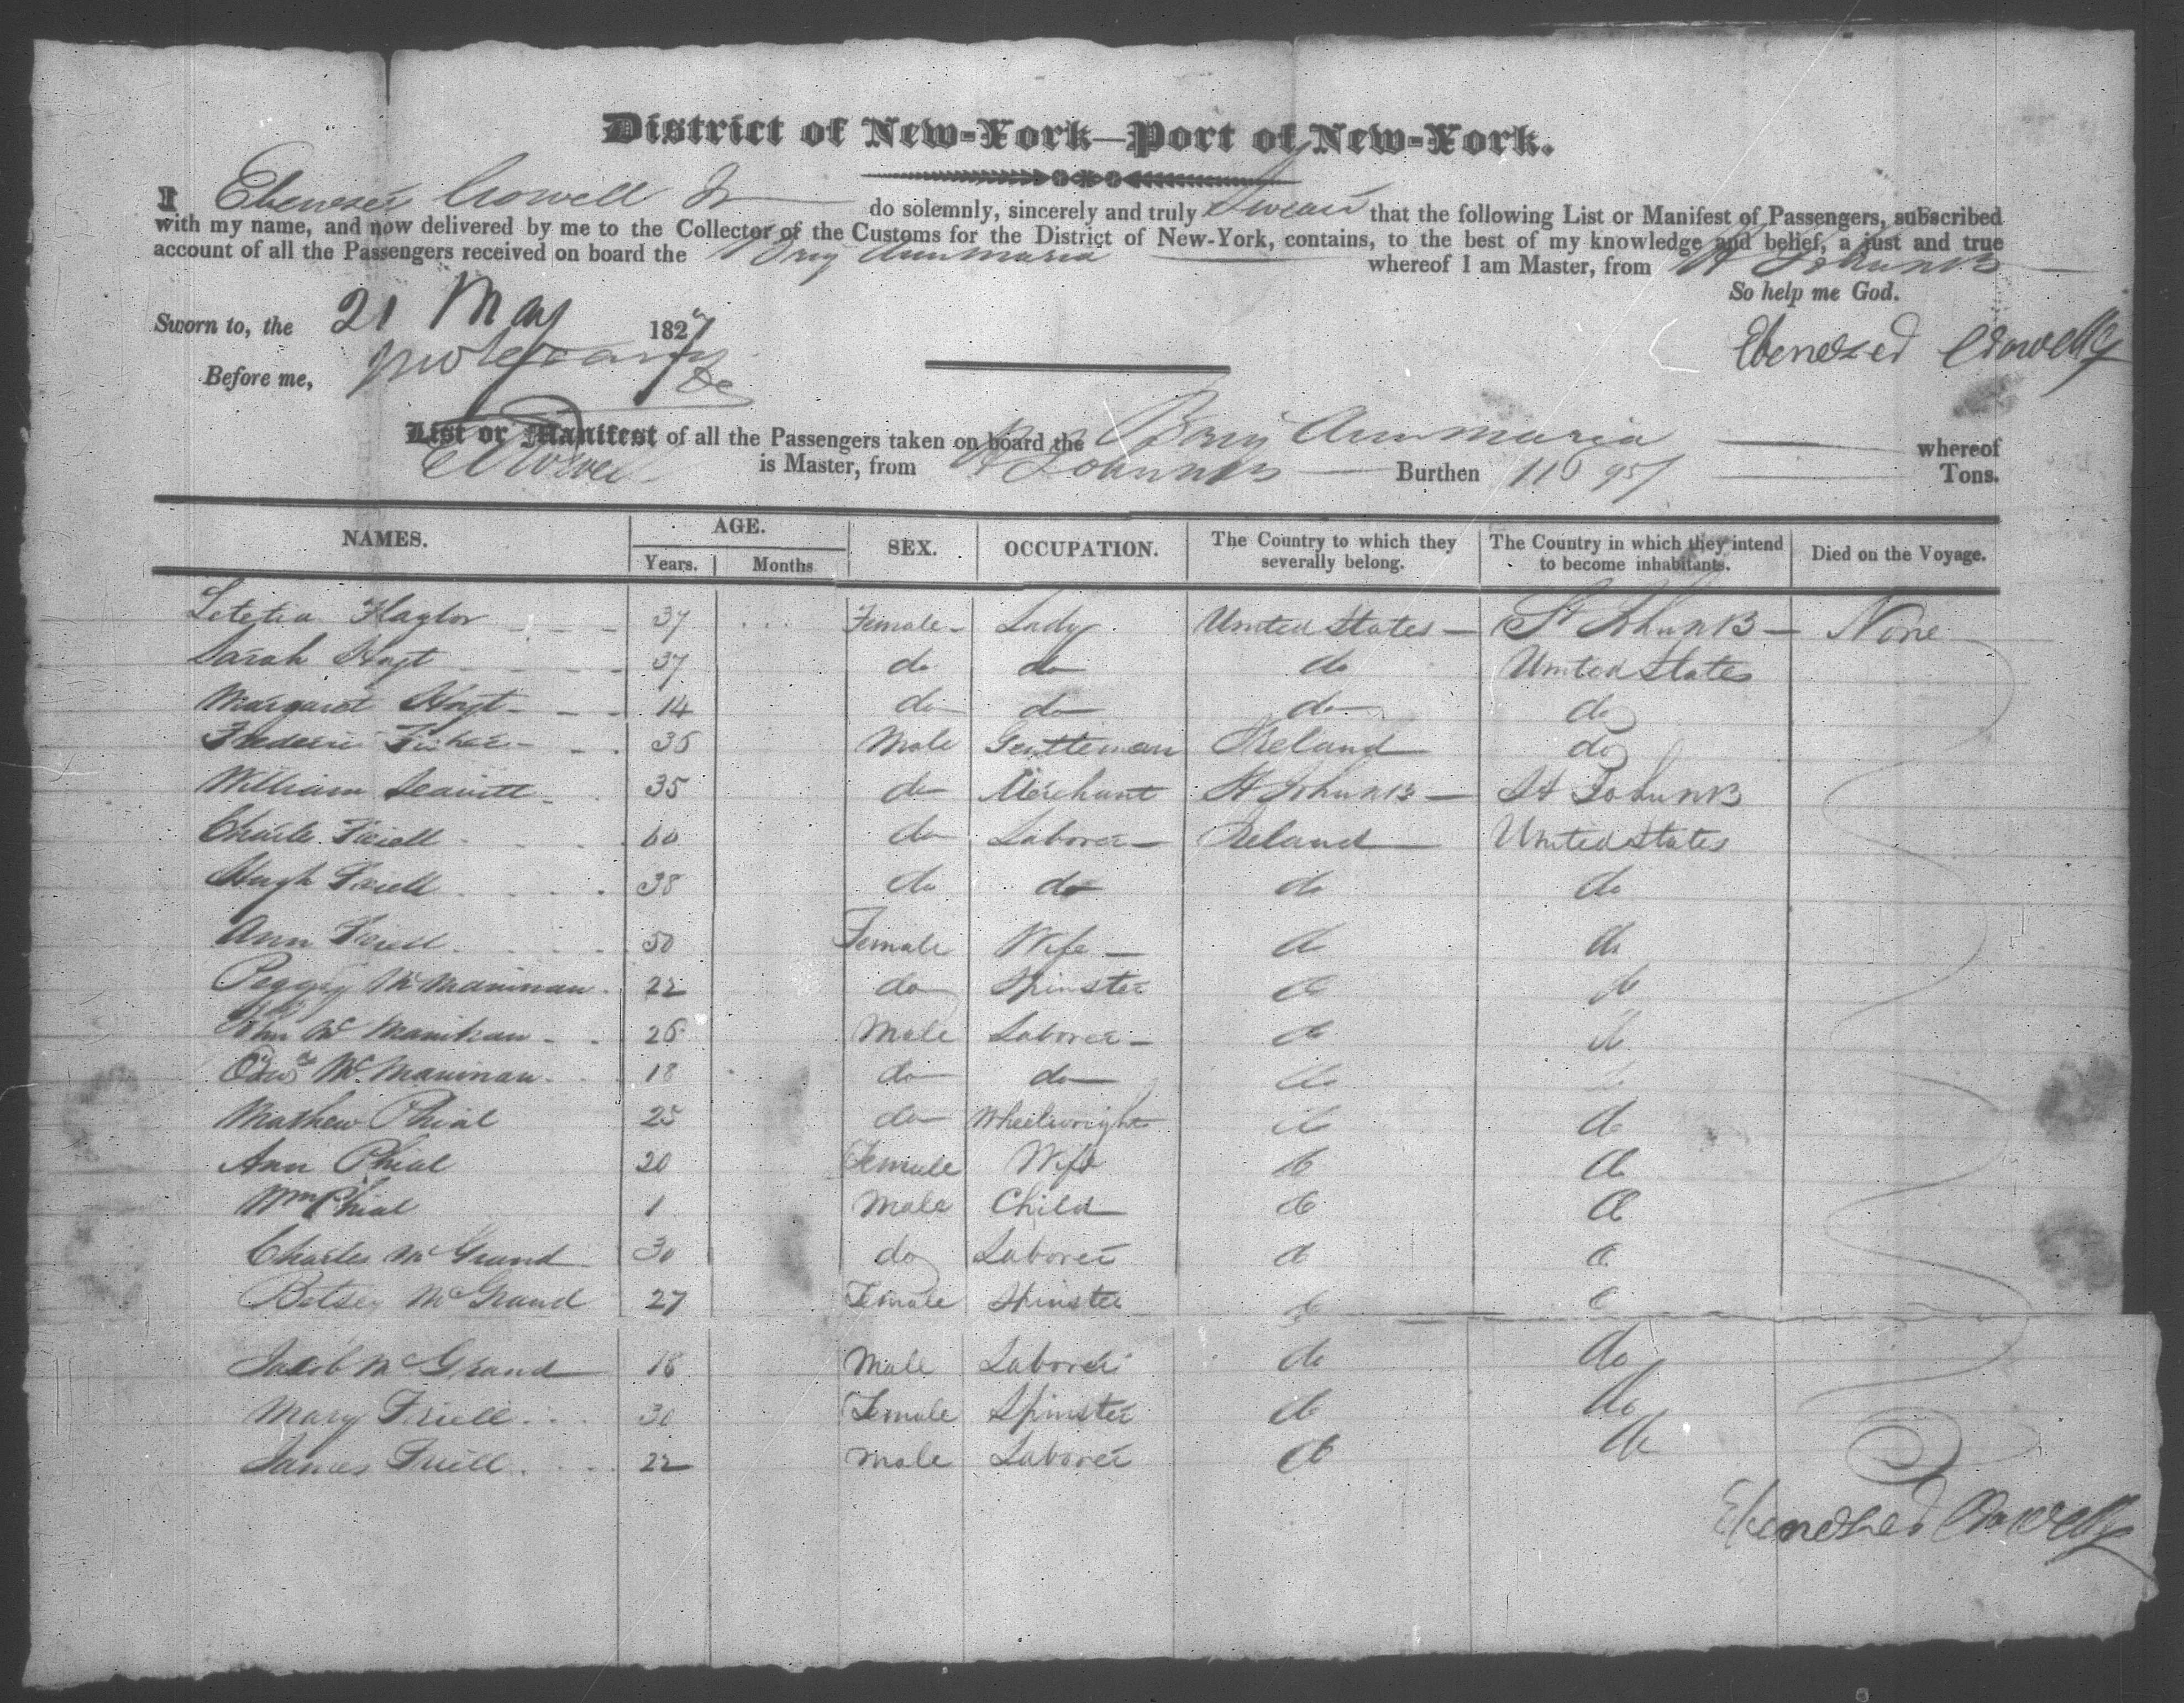 District of New-York—Port of New-York.
I Ebenezer Crowell Jr do solemnly, sincerely and truly Swear that the following List or Manifest of Passengers, subscribed
with my name, and now delivered by me to the Collector of the Customs for the District of New-York, contains, to the best of my knowledge and belief, a just and true
account of all the Passengers received on board the Brig Annmaria whereof I am Master, from St John NB
So help me God.
Sworn to, the 21 May 1827
Ebenezer Crowell Jr
Before me,
List or Manifest of all the Passengers taken on board the Brig Annmaria whereof
E Crowell is Master, from St John NB Burthen Tons.
NAMES. AGE. SEX. OCCUPATION. The Country to which they severally belong. The Country in which they intend to become inhabitants. Died on the Voyage.
Years. Months
Letetia 37 Female Lady United States St John NB None
Sarah Hoyt 37 do do do United States
Margaret Hoyt 14 do do do do
Frederic Fisher 36 Male Gentleman Ireland do
William Leavitt 35 do Merchant St John NB St John NB
Charls Friell 60 do Laborer Ireland United States
Hugh Friell 38 do do do do
Ann Friell 50 Female Wife do do
Peggy McManiman 22 do Spinster do do
John McManiman 26 Male Laborer do do
Edwd McManiman 18 do do do do
Mathew Phial 25 do Wheelwright do do
Ann Phial 20 Female Wife do do
Wm Phial 1 Male Child do do
Charles McGrand 30 do Laborer do do
Betsey McGrand 27 Female Spinster do do
Jacob McGrand 18 Male Laborer do do
Mary Friell 30 Female Spinster do do
James Friell 22 Male Laborer do do
Ebenezer Crowell Jr